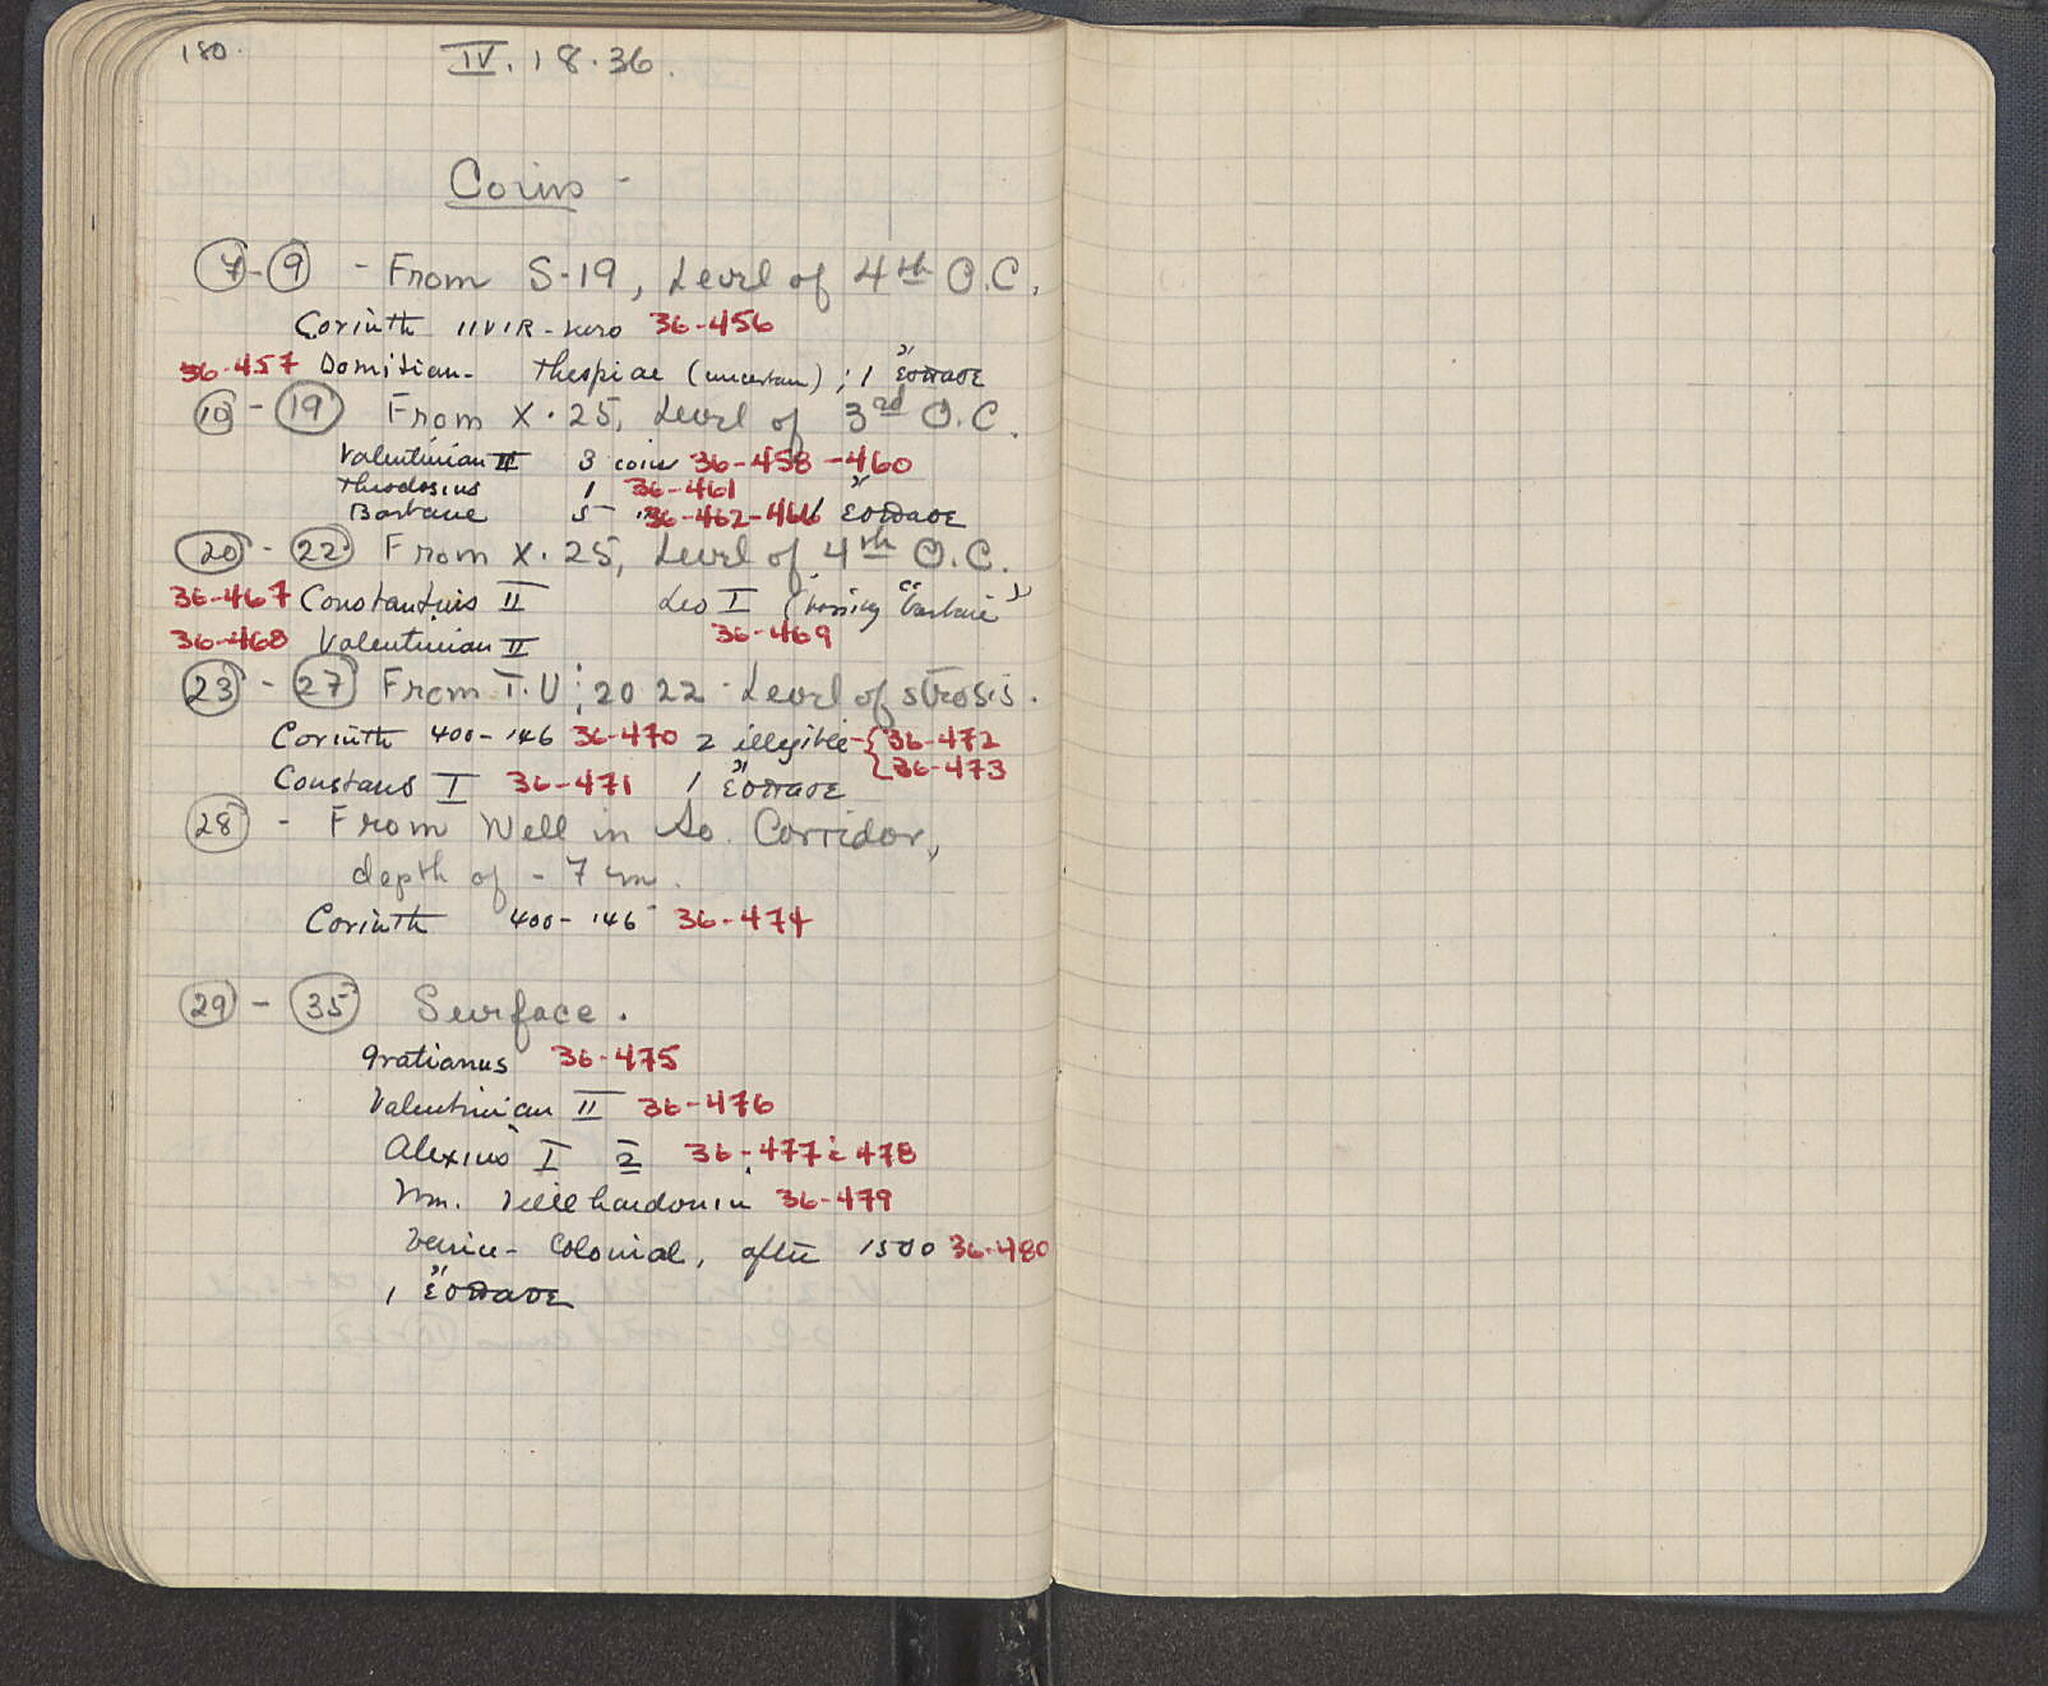 180.
IV. 18.36.
Coins -
7 - 9 - From S-19, Level of 4th O.C.
Corinth IIVIR - Nero 36-456
36-457 Domitian - Thespiae (uncertain); 1 ἔσπασε
10 - 19 From X.25, Level of 3rd O.C.
Valentinian II 3 coins 36-458 -460
Theodosius 1 36-461
Barbaric 5 36-462-466 1 ἔσπασε
20 - 22 From X.25, Level of 4th O.C.
36-467 Constantius II Leo I ( "barbaric")
36-468 Valentinian II 36-469
23 - 27 From T.U; 20 22 - Level of strosis.
Corinth 400-146 36-470 2 illegible - { 36-472
36-473
Constans I 36-471 1 ἔσπασε
28 - From Well in So. Corridor,
depth of - 7 m.
Corinth 400-146 36-474
29 - 35 Surface.
Gratianus 36-475
Valentinian II 36-476
Alexius I 2 36-477 : 478
Wm. Villehardouin 36-479
Venice - Colonial, after 1500 36-480
1 ἔσπασε